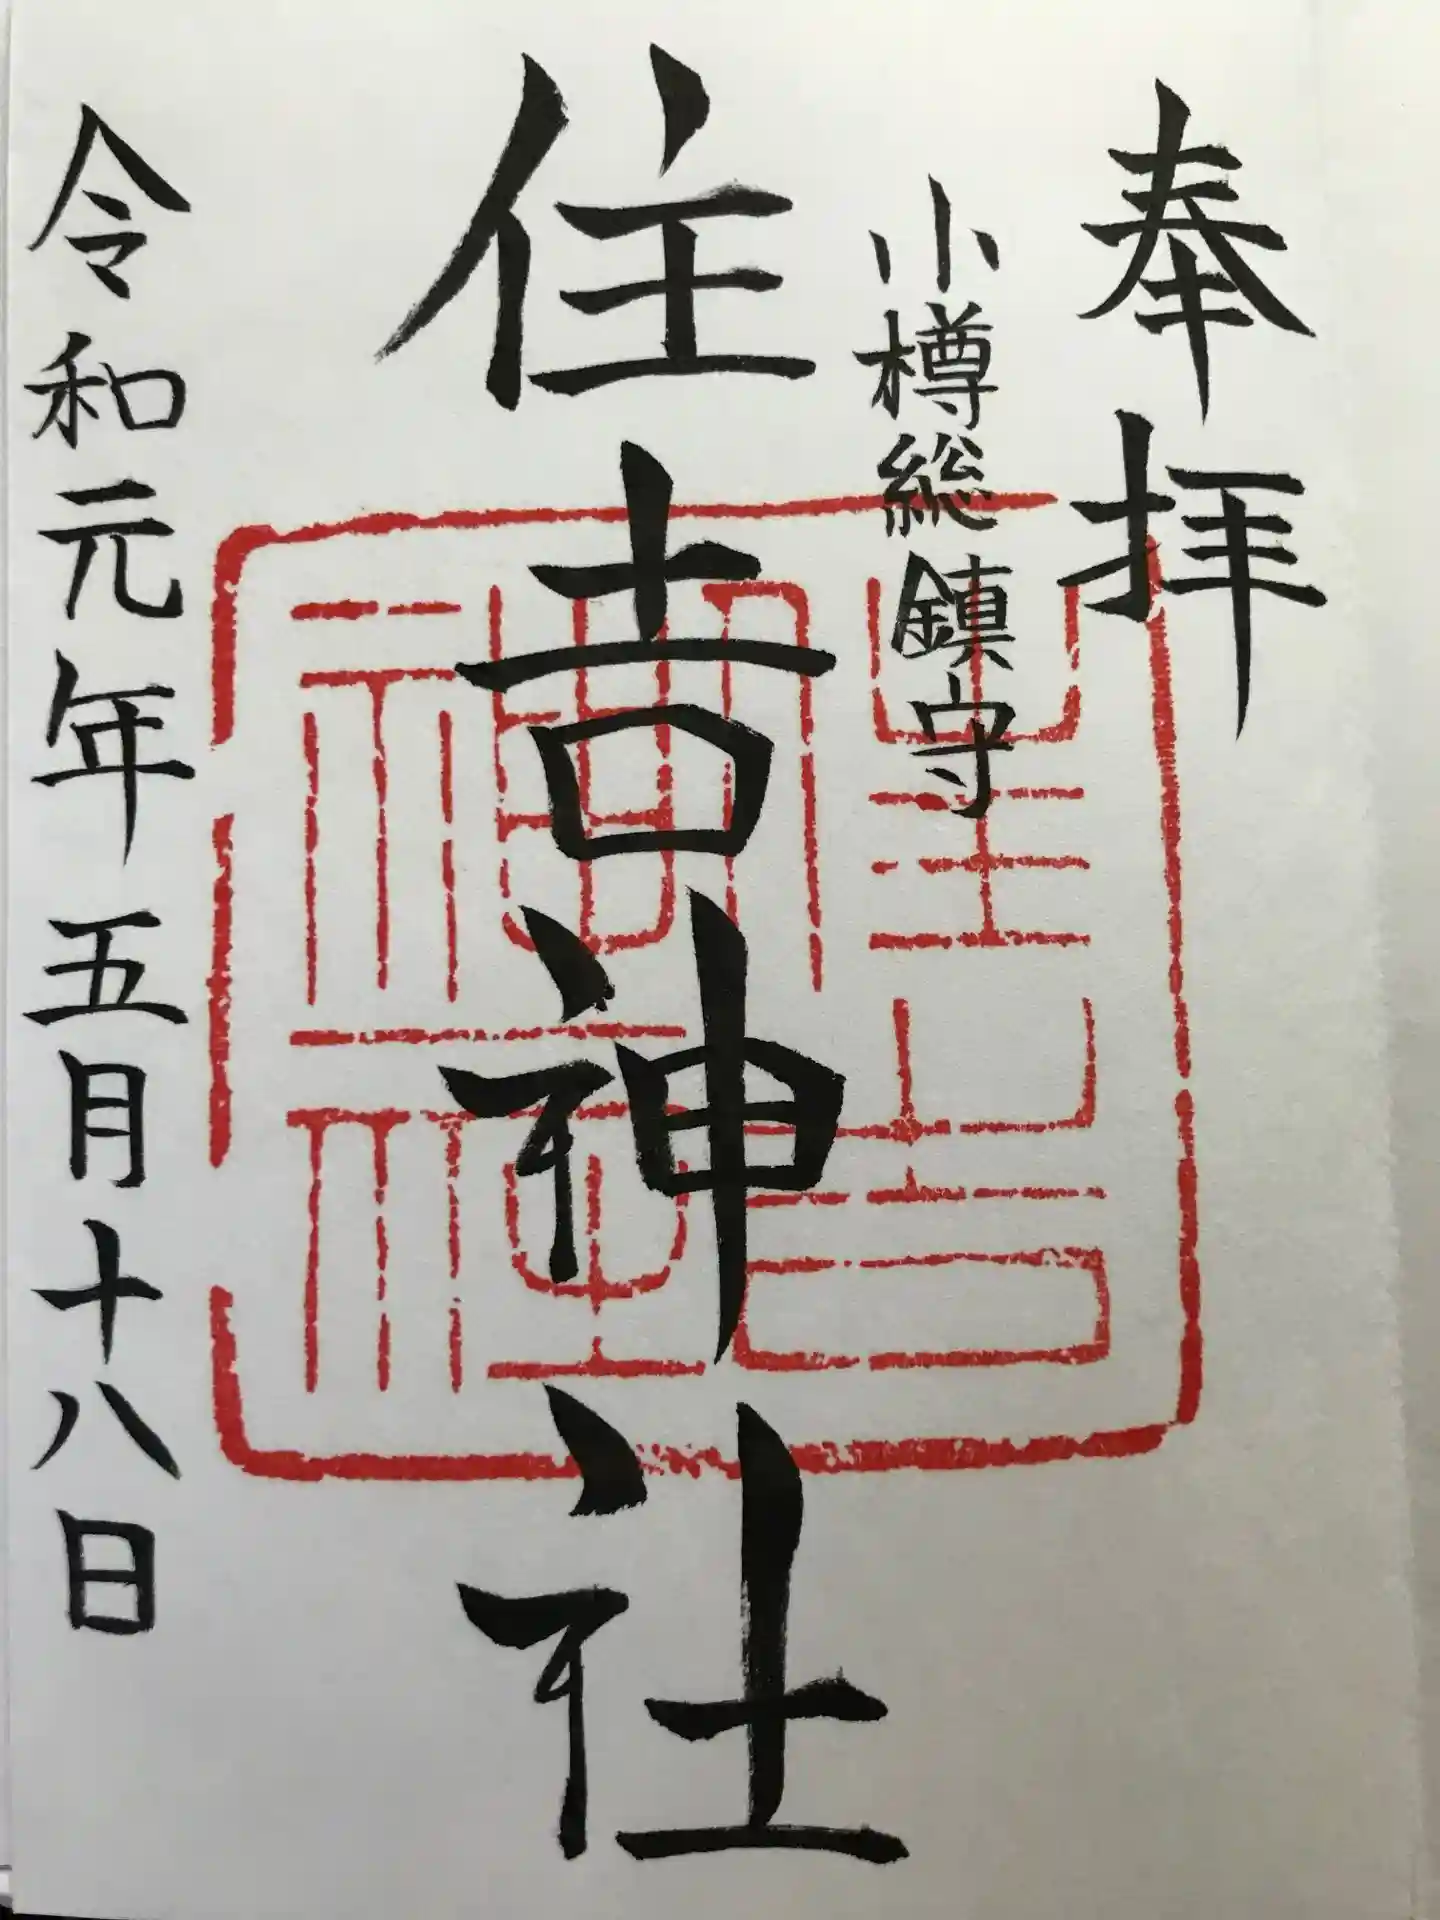 奉拝
小樽総鎮守
住吉神社
住吉神社
令和元年五月十八日